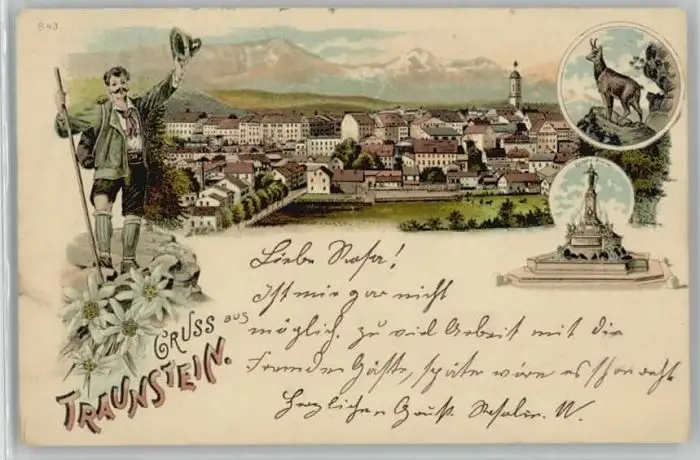 843
Liebe Rosa!
Ist mir gar nicht
möglich. zu viel Arbeit mit die
Fremden Gäste, später wäre es schon recht
Herzlichen Gruß. W.
GRUSS AUS
TRAUNSTEIN.